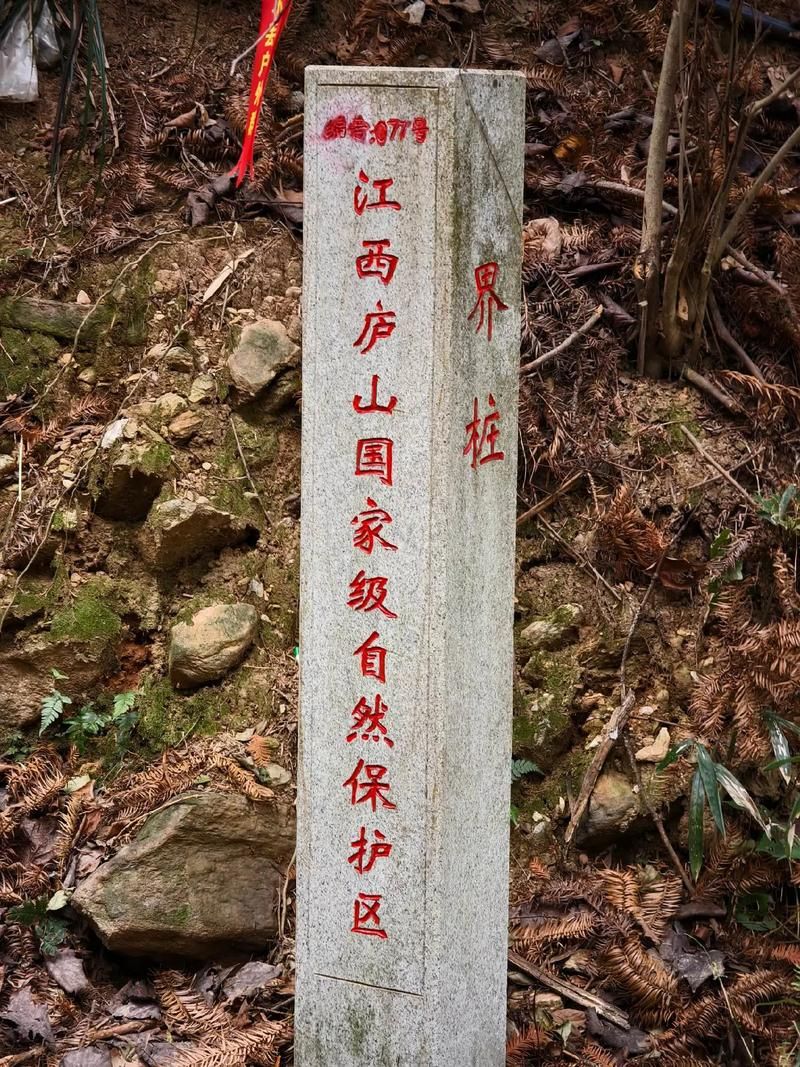 编号:077号
江西庐山国家级自然保护区
界桩
去户外